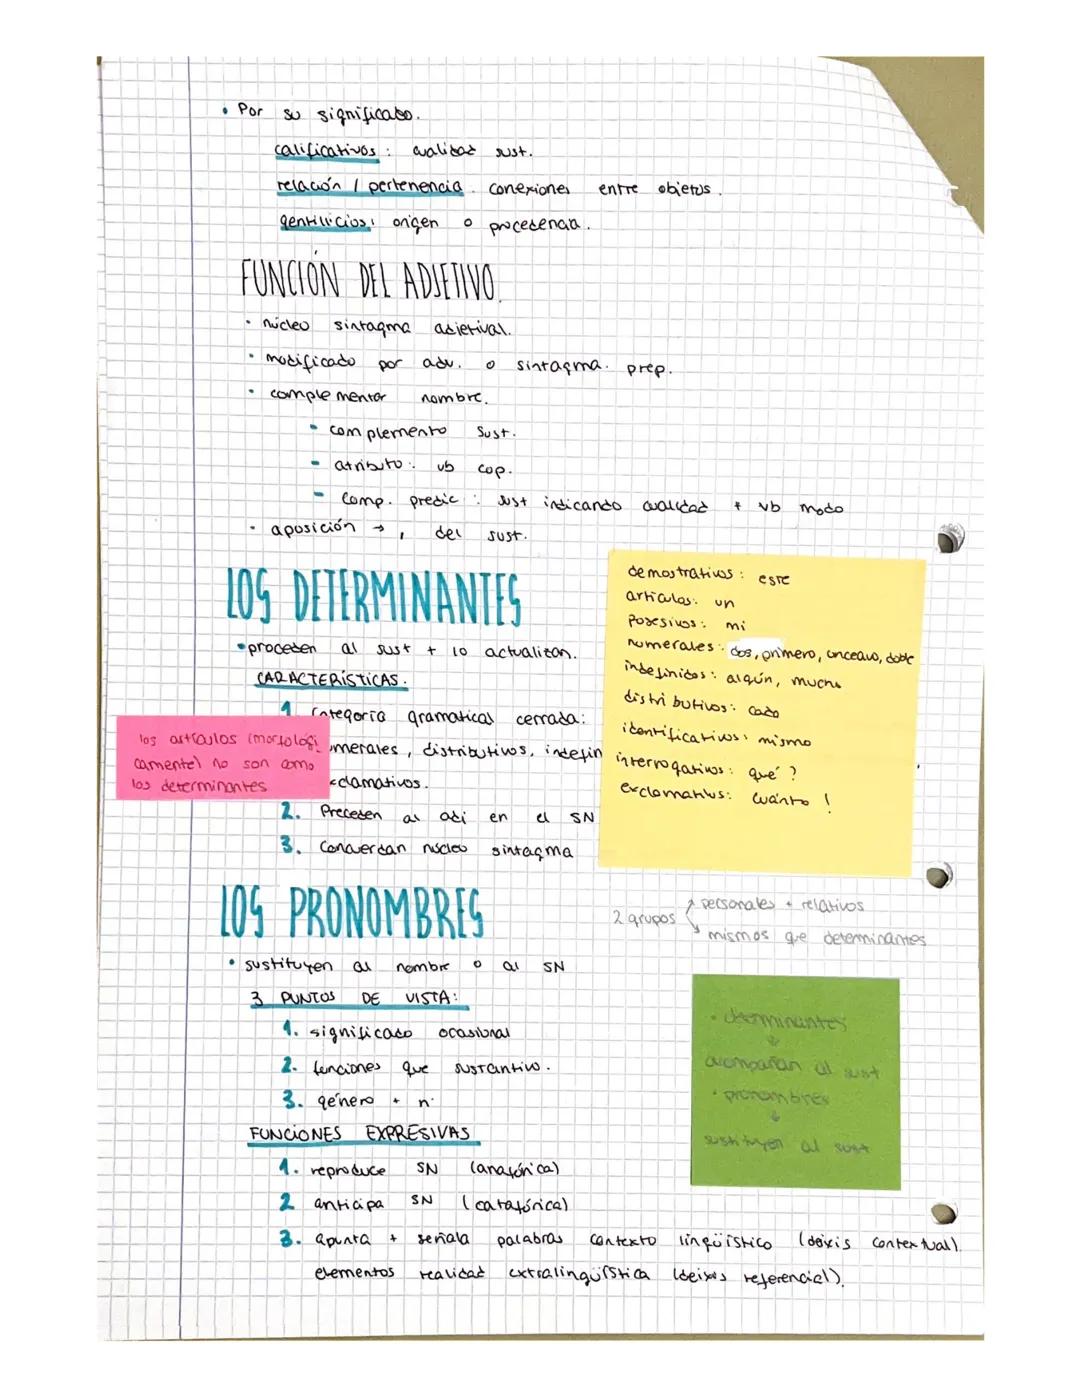 • Por su significado.
calificativos: cualidad sust.
relación / pertenencia. conexiones entre objetos.
gentilicios: origen o procedencia.
FUNCIÓN DEL ADJETIVO.
• núcleo sintagma adjetival.
• modificado por adv. o sintagma. prep.
• complementar nombre.
- complemento sust.
- atributo: vb cop.
- comp. predic: sust indicando cualidad + vb modo
• aposición → , del sust.
LOS DETERMINANTES
• proceden al sust + lo actualizan.
CARACTERÍSTICAS.
1. Categoría gramatical cerrada:
umerales, distributivos, indefin
xclamativos.
2. Preceden al adj en el SN
3. Concuerdan núcleo sintagma
los artículos (morfológi
camente) no son como
los determinantes
demostrativos: este
artículos: un
posesivos: mi
numerales: dos, primero, onceavo, doble
indefinidos: algún, mucho
distributivos: cada
identificativos: mismo
interrogativos: qué?
exclamativos: cuánto!
LOS PRONOMBRES
2 grupos
↗ personales + relativos
↘ mismos que determinantes
• sustituyen al nombre o al SN
3 PUNTOS DE VISTA:
1. significado ocasional
2. funciones que sustantivo.
3. género + nº
FUNCIONES EXPRESIVAS
1. reproduce SN (anafórica)
2 anticipa SN (catafórica)
3. apunta + señala palabras contexto lingüístico (deixis contextual).
elementos realidad extralingüística (deixis referencial).
• determinantes
↓
acompañan al sust
• pronombres
↓
sustituyen al sust